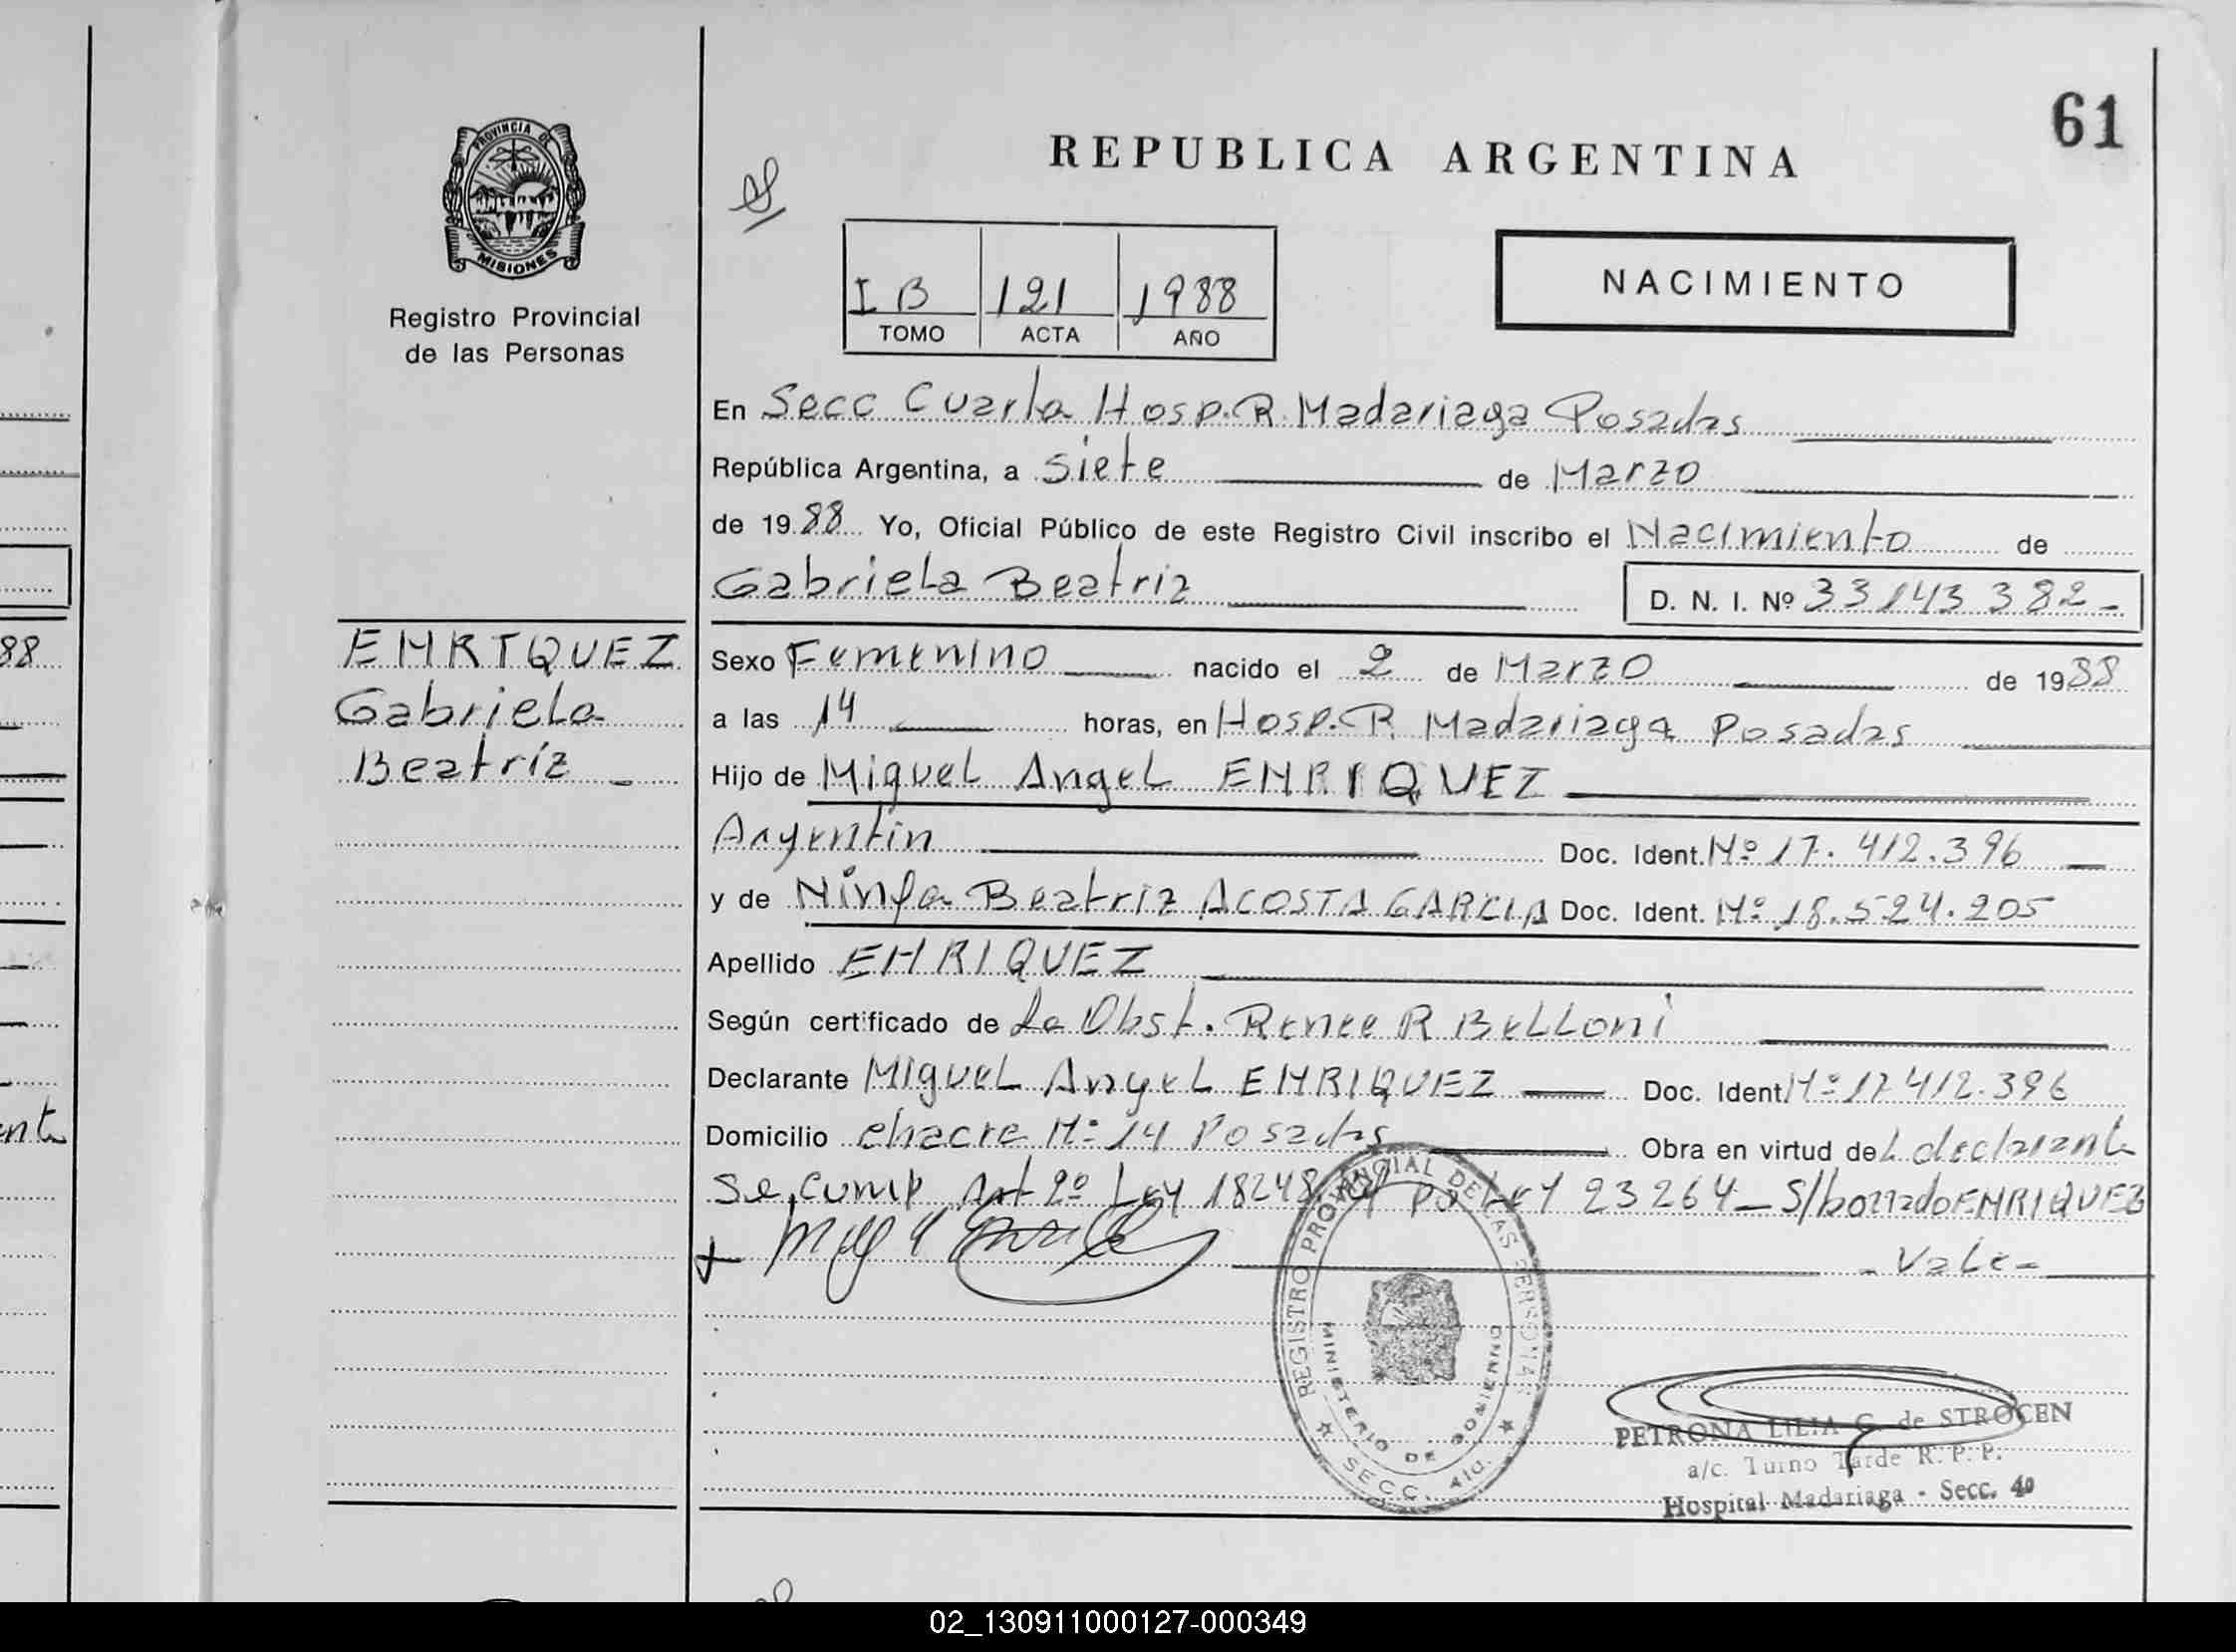 61
REPUBLICA ARGENTINA
PROVINCIA DE
MISIONES
Registro Provincial
de las Personas
I B 121 1988
TOMO ACTA AÑO
NACIMIENTO
En Secc Cuarta Hosp. R. Madariaga Posadas
República Argentina, a Siete de Marzo
de 1988 Yo, Oficial Público de este Registro Civil inscribo el Nacimiento de
Gabriela Beatriz D. N. I. Nº 33143382-
ENRIQUEZ
Gabriela
Beatríz -
Sexo Femenino nacido el 2 de Marzo de 1988
a las 14 horas, en Hosp. R. Madariaga Posadas
Hijo de Miguel Angel ENRIQUEZ
Argentin Doc. Ident. Nº 17.412.396
y de Ninfa Beatriz ACOSTA GARCIA Doc. Ident. Nº 18.524.205
Apellido ENRIQUEZ
Según certificado de La Obst. Renee R Belloni
Declarante Miguel Angel ENRIQUEZ Doc. Ident Nº 17412.396
Domicilio chacra Nº 14 Posadas Obra en virtud del declarante
Se cump Art 2º Ley 18248 Ley 23264 - S/borrado ENRIQUEZ
- Vale -
REGISTRO PROVINCIAL DE LAS PERSONAS
MINISTERIO DE GOBIERNO
SECC. 4ta.
PETRONA LILIA G. de STROCEN
a/c. Turno Tarde R. P. P.
Hospital Madariaga - Secc. 4º
88
ent
02_130911000127-000349